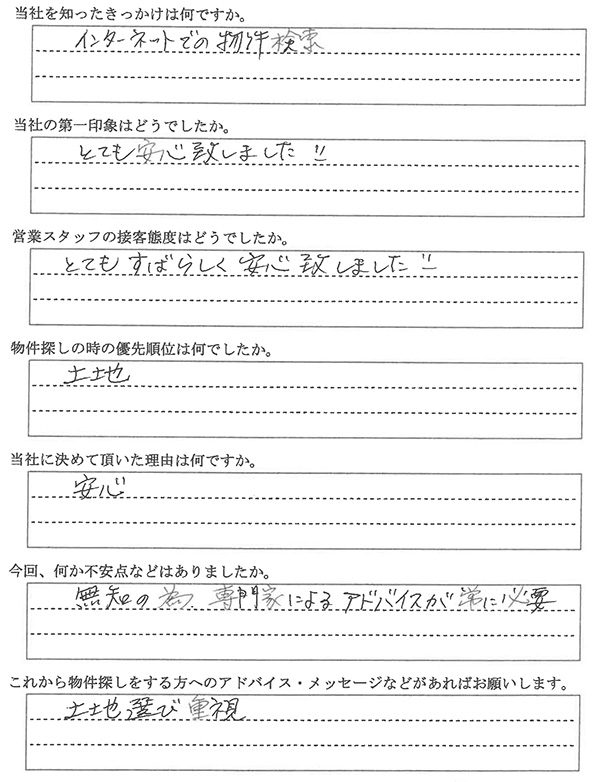 当社を知ったきっかけは何ですか。
インターネットでの物件検索
当社の第一印象はどうでしたか。
とても安心致しました!!
営業スタッフの接客態度はどうでしたか。
とてもすばらしく安心致しました!!
物件探しの時の優先順位は何でしたか。
土地
当社に決めて頂いた理由は何ですか。
安心
今回、何か不安点などはありましたか。
無知の為、専門家によるアドバイスが常に必要
これから物件探しをする方へのアドバイス・メッセージなどがあればお願いします。
土地選び重視